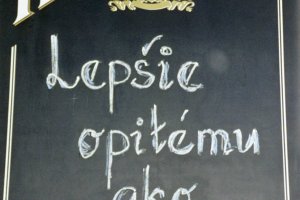 Lepšie
opitému
ako